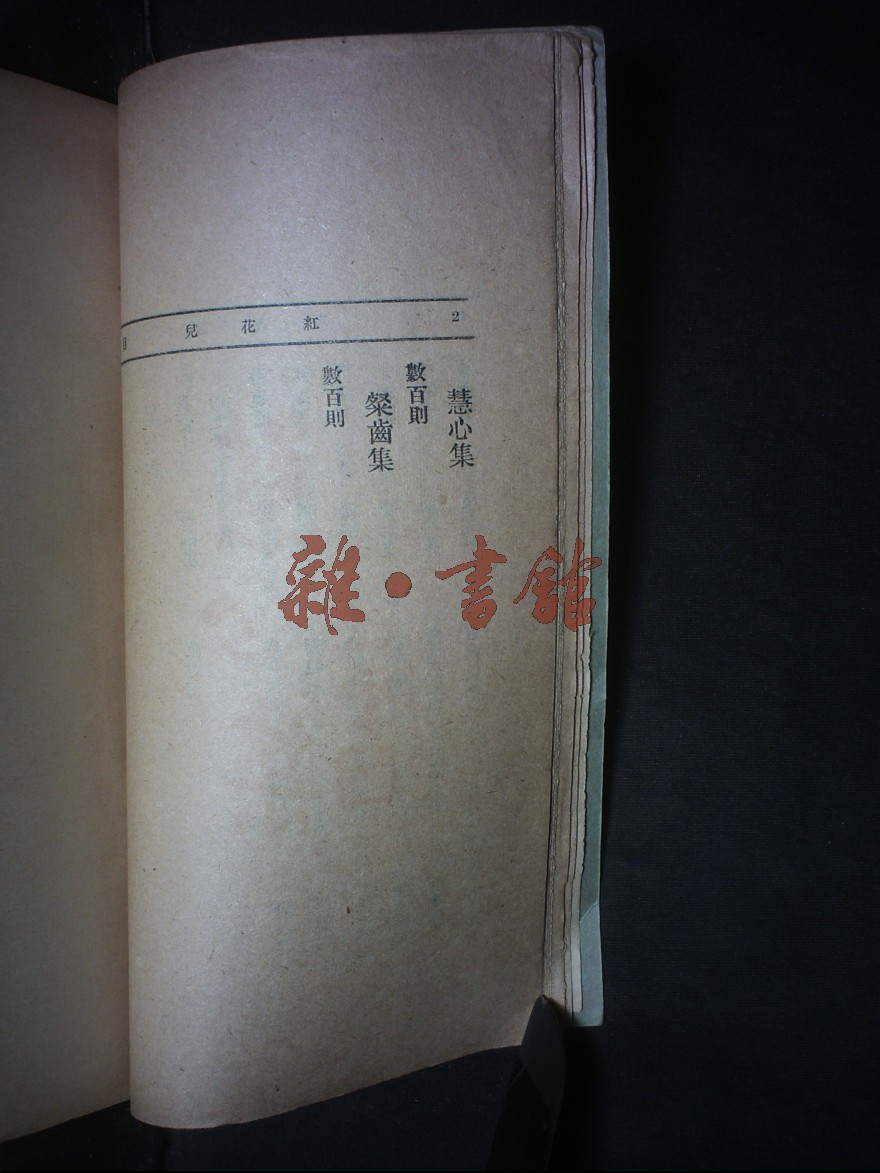 2 紅花兒 目
慧心集
數百則
粲齒集
數百則
雜·書館